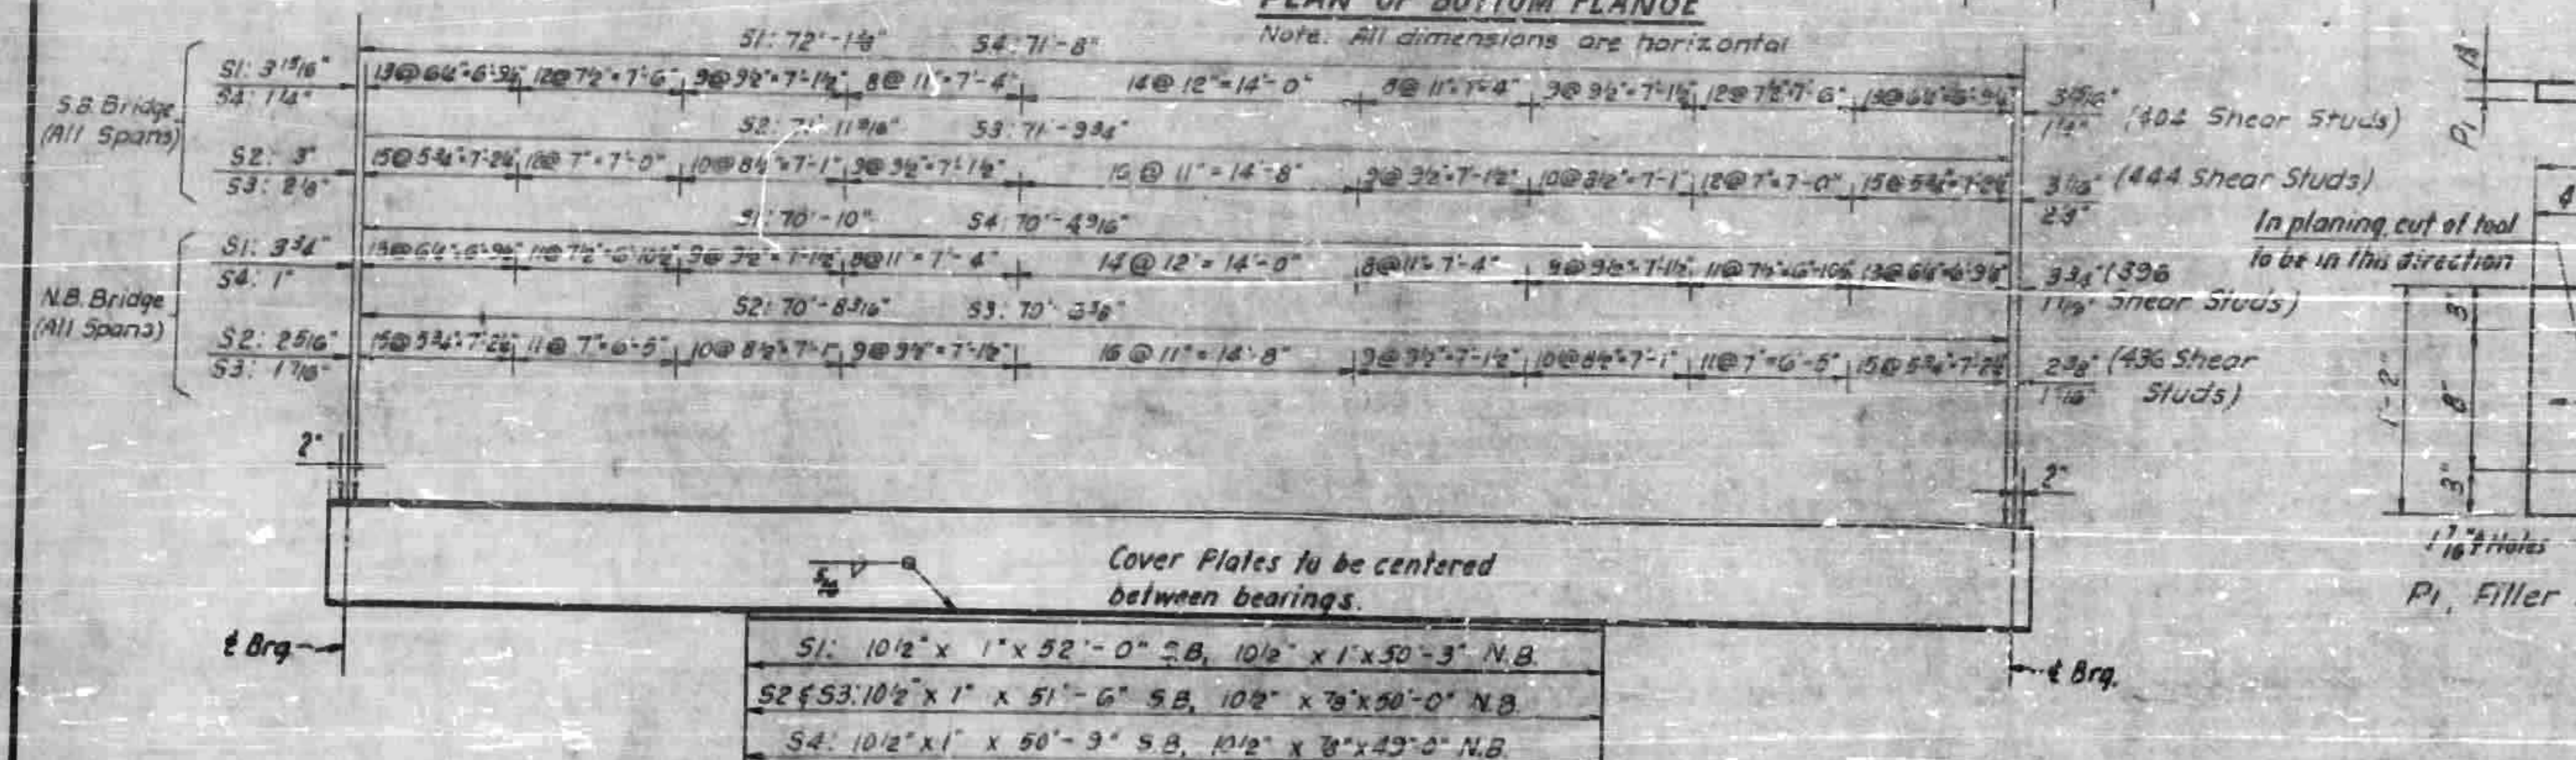 PLAN OF BOTTOM FLANGE
Note. All dimensions are horizontal
S.B. Bridge
(All Spans)
S1: 72'-1⅛" S4: 71'-8"
S1: 3 15/16"
S4: 1¼"
13@6¼"=6'-9¼" 12@7½"=7'-6" 9@9½"=7'-1½" 8@11"=7'-4" 14@12"=14'-0" 8@11"=7'-4" 9@9½"=7'-1½" 12@7½"=7'-6" 13@6¼"=6'-9¼"
3 15/16"
1¼" (404 Shear Studs)
S2: 71'-11 9/16" S3: 71'-9¾"
S2: 3"
S3: 2⅛"
15@5¾"=7'-2¼" 12@7"=7'-0" 10@8½"=7'-1" 9@9½"=7'-1½" 16@11"=14'-8" 9@9½"=7'-1½" 10@8½"=7'-1" 12@7"=7'-0" 15@5¾"=7'-2¼"
3 1/16" (444 Shear Studs)
N.B. Bridge
(All Spans)
S1: 70'-10" S4: 70'-4 9/16"
S1: 3¾"
S4: 1"
13@6¼"=6'-9¼" 11@7½"=6'-10½" 9@9½"=7'-1½" 8@11"=7'-4" 14@12"=14'-0" 8@11"=7'-4" 9@9½"=7'-1½" 11@7½"=6'-10½" 13@6¼"=6'-9¼"
3¾" (396
Shear Studs)
S2: 70'-8 3/16" S3: 70'-3⅜"
S2: 2 5/16"
S3: 1 7/16"
15@5¾"=7'-2¼" 11@7"=6'-5" 10@8½"=7'-1" 9@9½"=7'-1½" 16@11"=14'-8" 9@9½"=7'-1½" 10@8½"=7'-1" 11@7"=6'-5" 15@5¾"=7'-2¼"
2⅜" (436 Shear
Studs)
2" 2"
Cover Plates to be centered
between bearings.
℄ Brg
℄ Brg.
S1: 10½" x 1" x 52'-0" S.B, 10½" x 1" x 50'-3" N.B.
S2 & S3: 10½" x 1" x 51'-6" S.B, 10½" x ⅞" x 50'-0" N.B.
S4: 10½" x 1" x 50'-9" S.B, 10½" x ⅞" x 49'-0" N.B.
P1
4
In planing, cut of tool
to be in this direction
1'-2"
3"
8"
3"
1 7/16"φ Holes
P1, Filler